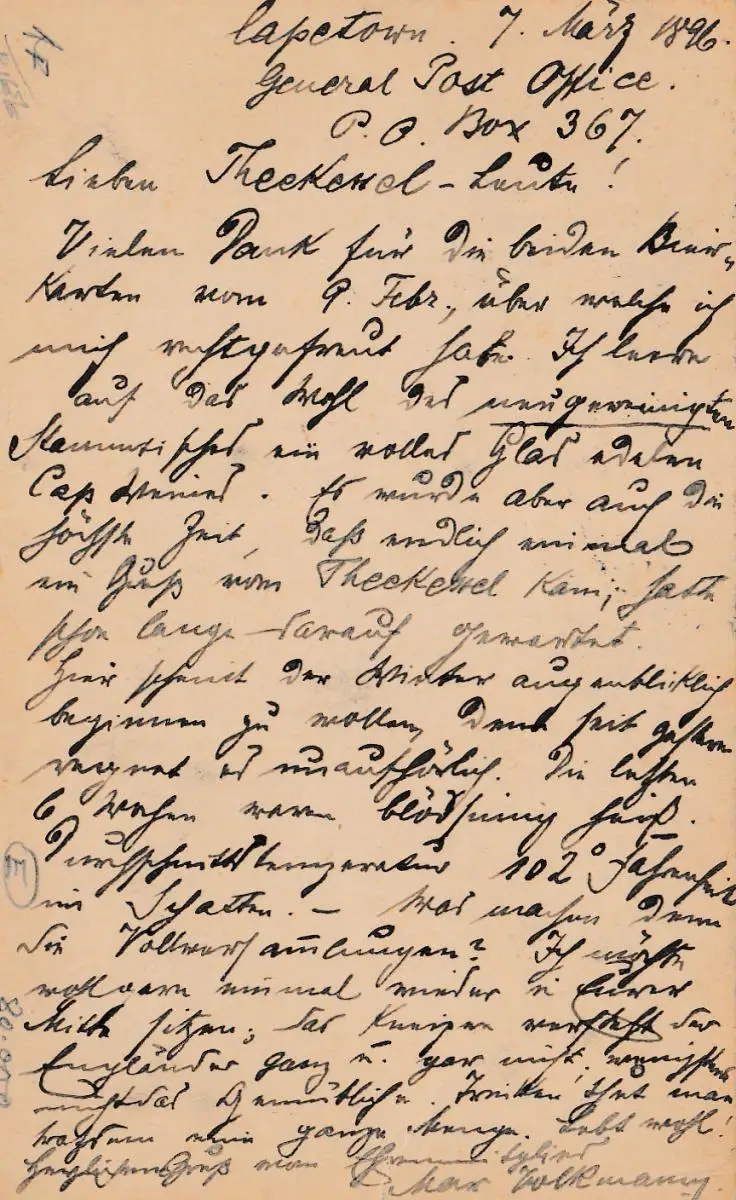 Capetown. 7. März 1896.
General Post Office.
P. O. Box 367.
Lieben Theekessel-Leute!
Vielen Dank für die beiden Bier-
Karten vom 9. Febr., über welche ich
mich recht gefreut habe. Ich leere
auf das Wohl des neugereinigten
Stammtisches ein volles Glas edelen
Cap Weines. Es wurde aber auch die
höchste Zeit, daß endlich einmal
ein Gruß vom Theekessel kam; hatte
schon lange darauf gewartet.
Hier scheint der Winter augenblicklich
beginnen zu wollen, denn seit gestern
regnet es unaufhörlich. Die letzten
6 Wochen waren blödsinnig heiß.
Durchschnittstemperatur 102° Fahrenheit
im Schatten. — Was machen denn
die Vollversammlungen? Ich möchte
wohl gern einmal wieder in Eurer
Mitte sitzen; das Kneipen versteht der
Engländer ganz u. gar nicht, wenigstens
nicht das Gemütliche. Trinken thut man
trotzdem eine ganze Menge. Lebt wohl!
Herzlichen Gruß vom Ehrenmitglied
Max Volkmann.